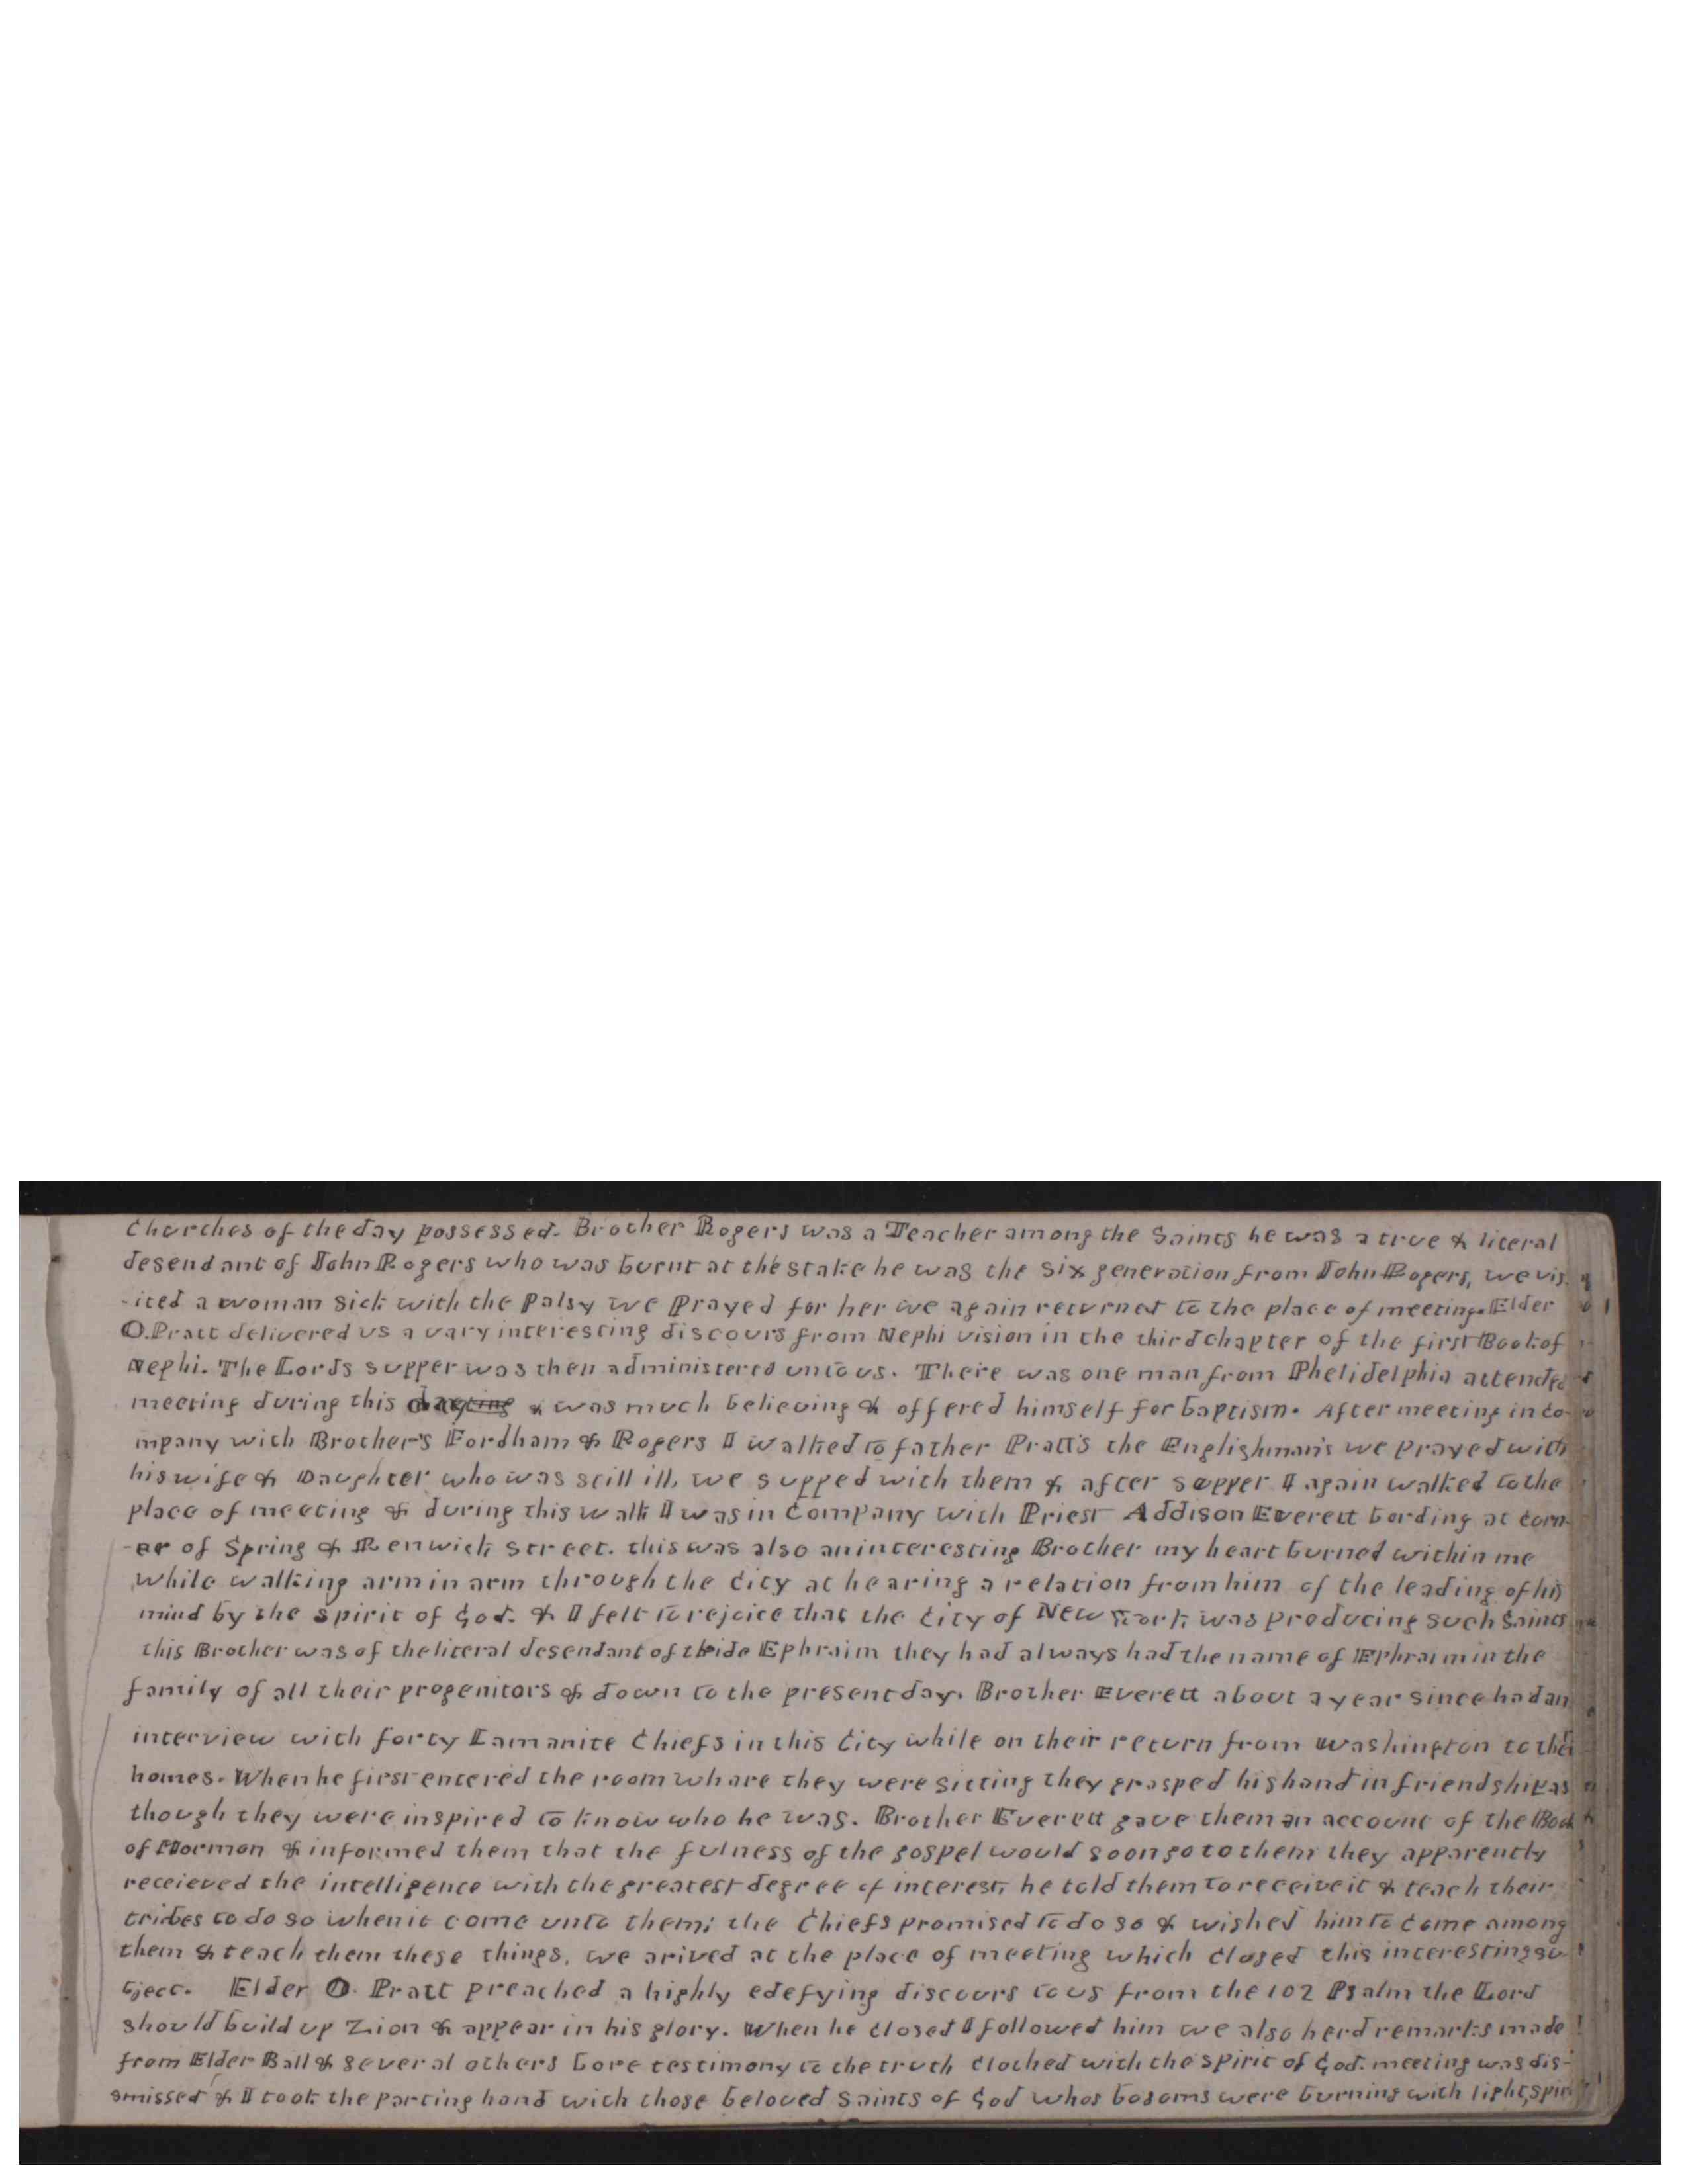 Churches of the day possessed. Brother Rogers was a Teacher among the Saints he was a true & literal
desendant of John Rogers who was burnt at the stake he was the six generation from John Rogers, we vis
-ited a woman sick with the Palsy we Prayed for her we again returned to the place of meeting. Elder
O. Pratt delivered us a vary interesting discours from Nephi vision in the third chapter of the first Book of
Nephi. The Lords supper was then administered unto us. There was one man from Phelidelphia attended
meeting during this day & was much believing & offered himself for baptism. After meeting in co-
mpany with Brother's Fordham & Rogers I walked to father Pratt's the Englishman's we prayed with
his wife & Daughter who was still ill, we supped with them & after supper I again walked to the
place of meeting & during this walk I was in Company with Priest Addison Everett bording at corn
-er of Spring & Renwick street. this was also an interesting Brother my heart burned within me
while walking arm in arm through the City at hearing a relation from him of the leading of his
mind by the spirit of God. & I felt to rejoice that the City of New York was producing such Saints
this Brother was of the literal desendant of Ephraim they had always had the name of Ephraim in the
family of all their progenitors & down to the present day. Brother Everett about a year since had an
interview with forty Lamanite Chiefs in this City while on their return from Washington to their
homes. When he first entered the room whare they were sitting they grasped his hand in friendship as
though they were inspired to know who he was. Brother Everett gave them an account of the Book
of Mormon & informed them that the fulness of the gospel would soon go to them they apparently
receieved the intelligence with the greatest degree of interest, he told them to receive it & teach their
tribes to do so when it come unto them; the Chiefs promised to do so & wished him to come among
them & teach them these things, we arived at the place of meeting which Closed this interesting su-
bject. Elder O. Pratt preached a highly edefying discours to us from the 102 Psalm the Lord
should build up Zion & appear in his glory. When he Closed I followed him we also herd remarks made
from Elder Ball & several others bore testimony to the truth Clothed with the spirit of God. meeting was dis-
smissed & I took the parting hand with those beloved Saints of God whos bosoms were burning with light, spir